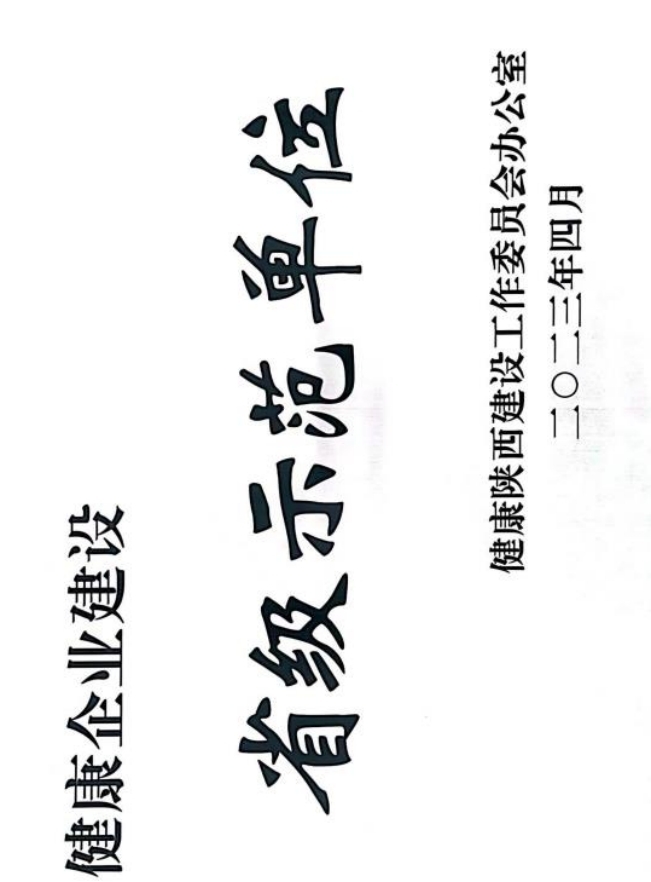 健康企业建设
省级示范单位
健康陕西建设工作委员会办公室
二〇二三年四月